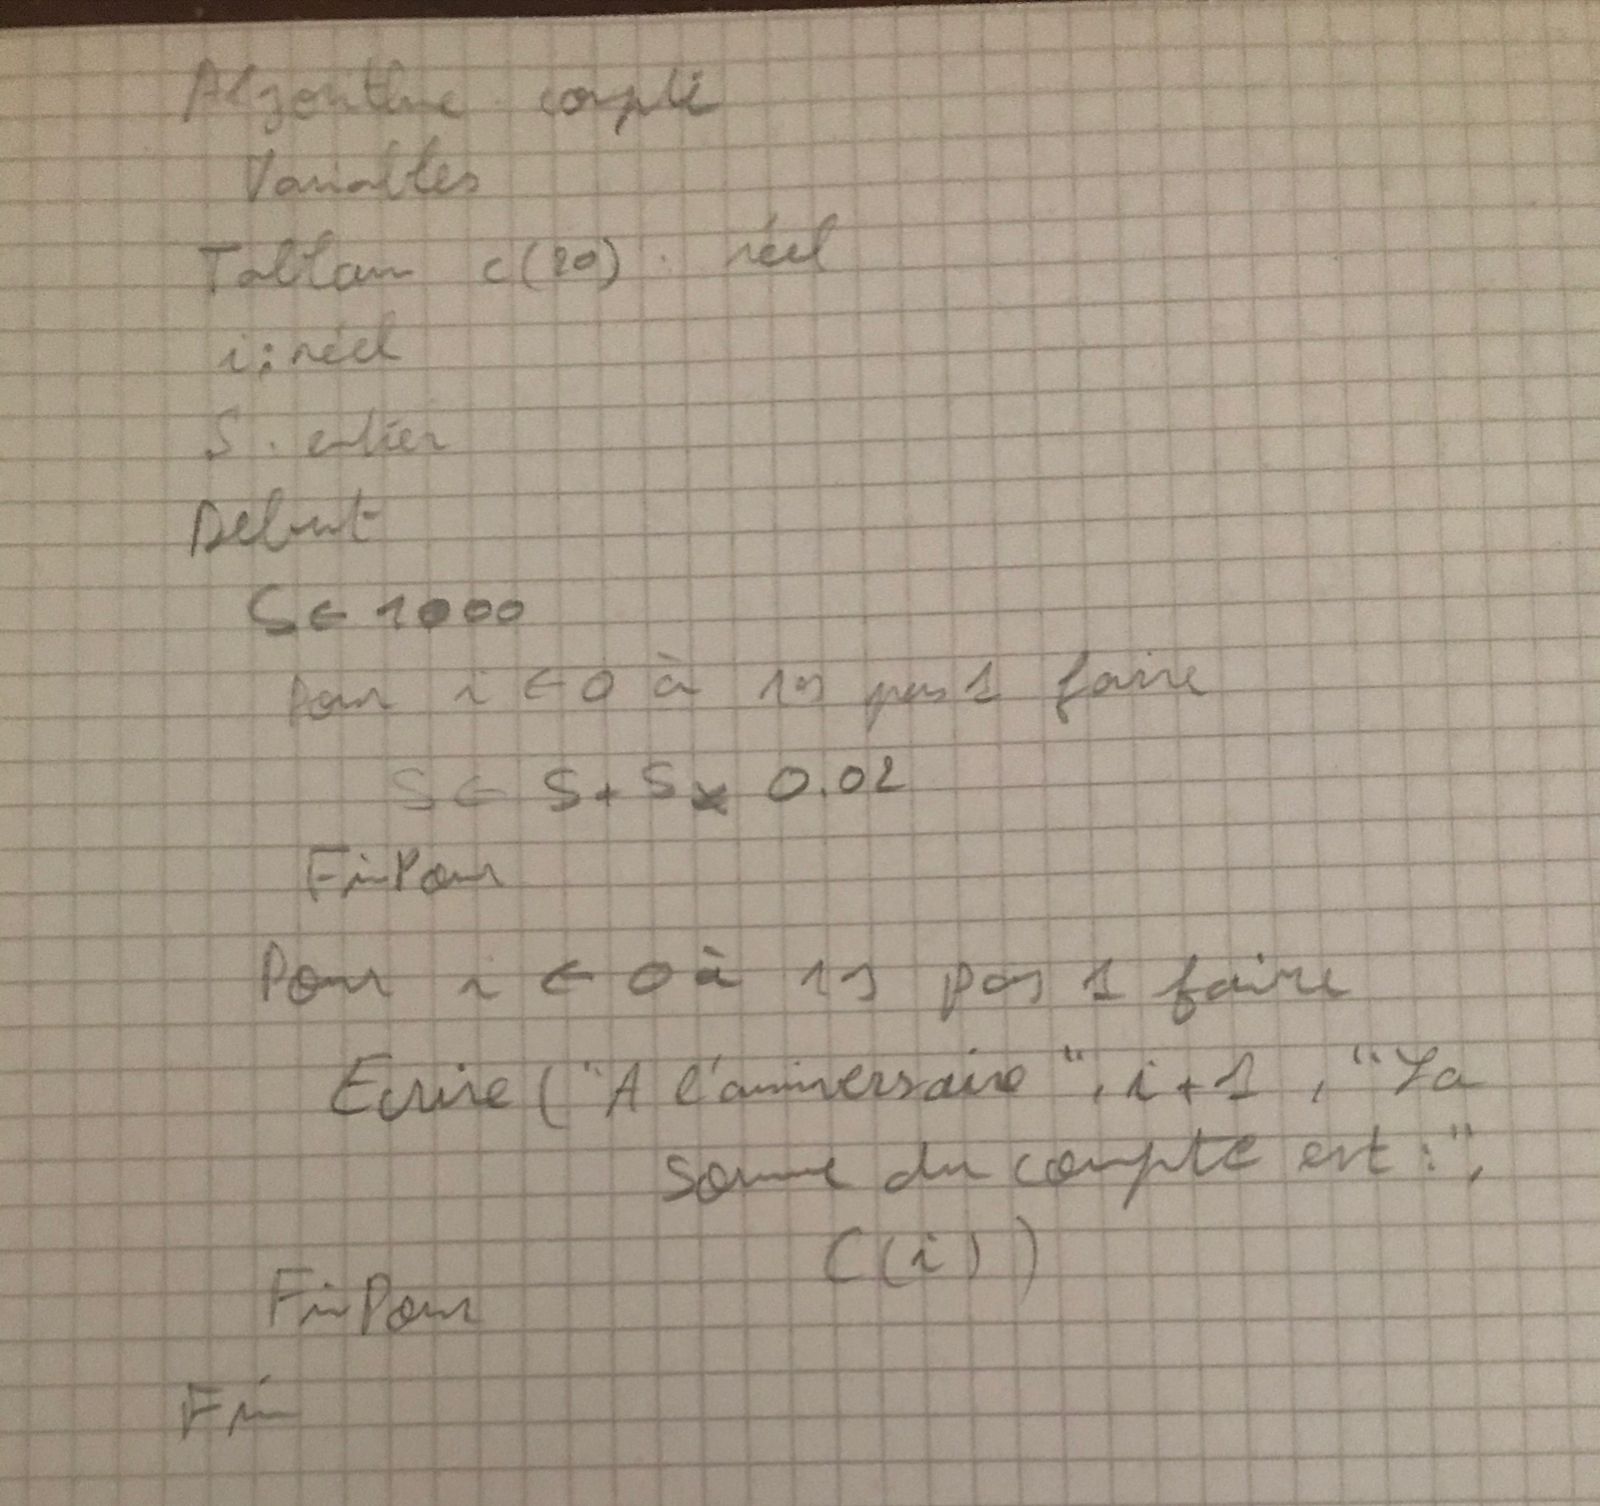 Algorithme compte
Variables
Tableau c(20) : réel
i : réel
S : entier
Debut
S ← 1000
Pour i ← 0 à 19 pas 1 faire
S ← S + S * 0.02
FinPour
Pour i ← 0 à 19 pas 1 faire
Ecrire ("A l'anniversaire", i + 1, "la
somme du compte est :",
C(i))
FinPour
Fin